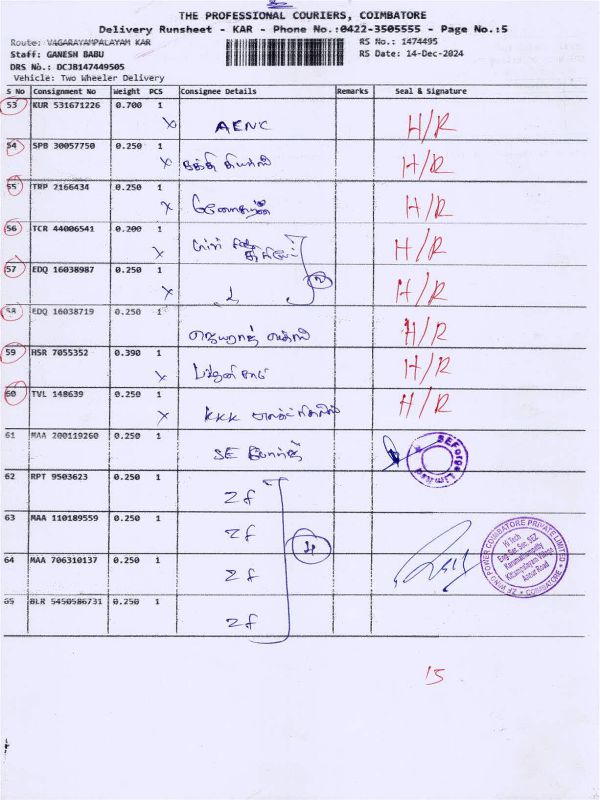 THE PROFESSIONAL COURIERS, COIMBATORE
Delivery Runsheet - KAR - Phone No.:0422-3505555 - Page No.:5
Route: VAGARAYAMPALAYAM KAR
RS No.: 1474495
Staff: GANESH BABU
RS Date: 14-Dec-2024
DRS No.: DCJB147449505
Vehicle: Two Wheeler Delivery
S No Consignment No Weight PCS Consignee Details Remarks Seal & Signature
53 KUR 531671226 0.700 1
x AENC H/R
54 SPB 30057750 0.250 1
x H/R
55 TRP 2166434 0.250 1
x H/R
56 TCR 44006541 0.200 1
x H/R
57 EDQ 16038987 0.250 1
x 2 H/R
58 EDQ 16038719 0.250 1
H/R
59 HSR 7055352 0.390 1
x H/R
60 TVL 148639 0.250 1
x KKK H/R
61 MAA 200119260 0.250 1
SE
SEForge Limited
62 RPT 9503623 0.250 1
Zf
63 MAA 110189559 0.250 1
Zf
4
64 MAA 706310137 0.250 1
Zf
ZF WIND POWER COIMBATORE PRIVATE LIMITED
COIMBATORE
Hi Tech
Engg Sec, SEZ
Karumathampatty
Kittampalayam Village
Annur Road
65 BLR 5450586731 0.250 1
Zf
15